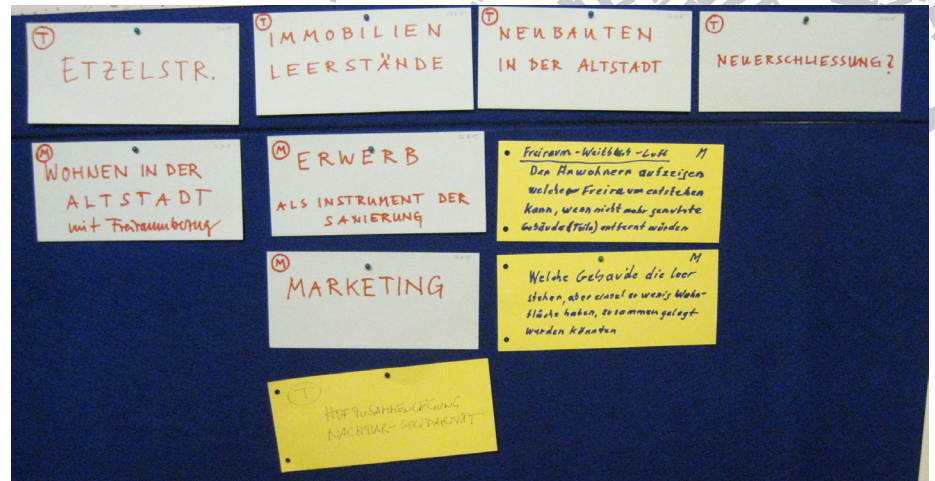 T
ETZELSTR.
T
IMMOBILIEN
LEERSTÄNDE
T
NEUBAUTEN
IN DER ALTSTADT
T
NEUERSCHLIESSUNG?
M
WOHNEN IN DER
ALTSTADT
mit Freiraumbezug
M
ERWERB
ALS INSTRUMENT DER
SANIERUNG
Freiraum-Weitblick-Luft M
Den Anwohnern aufzeigen
welcher Freiraum entstehen
kann, wenn nicht mehr genutzte
Gebäude(Teile) entfernt würden
M
MARKETING
M
Welche Gebäude die leer
stehen, aber einzel zu wenig Wohn-
fläche haben, zusammen gelegt
werden könnten
T
HOFZUSAMMENLEGUNG
NACHBAR-SOLIDARITÄT